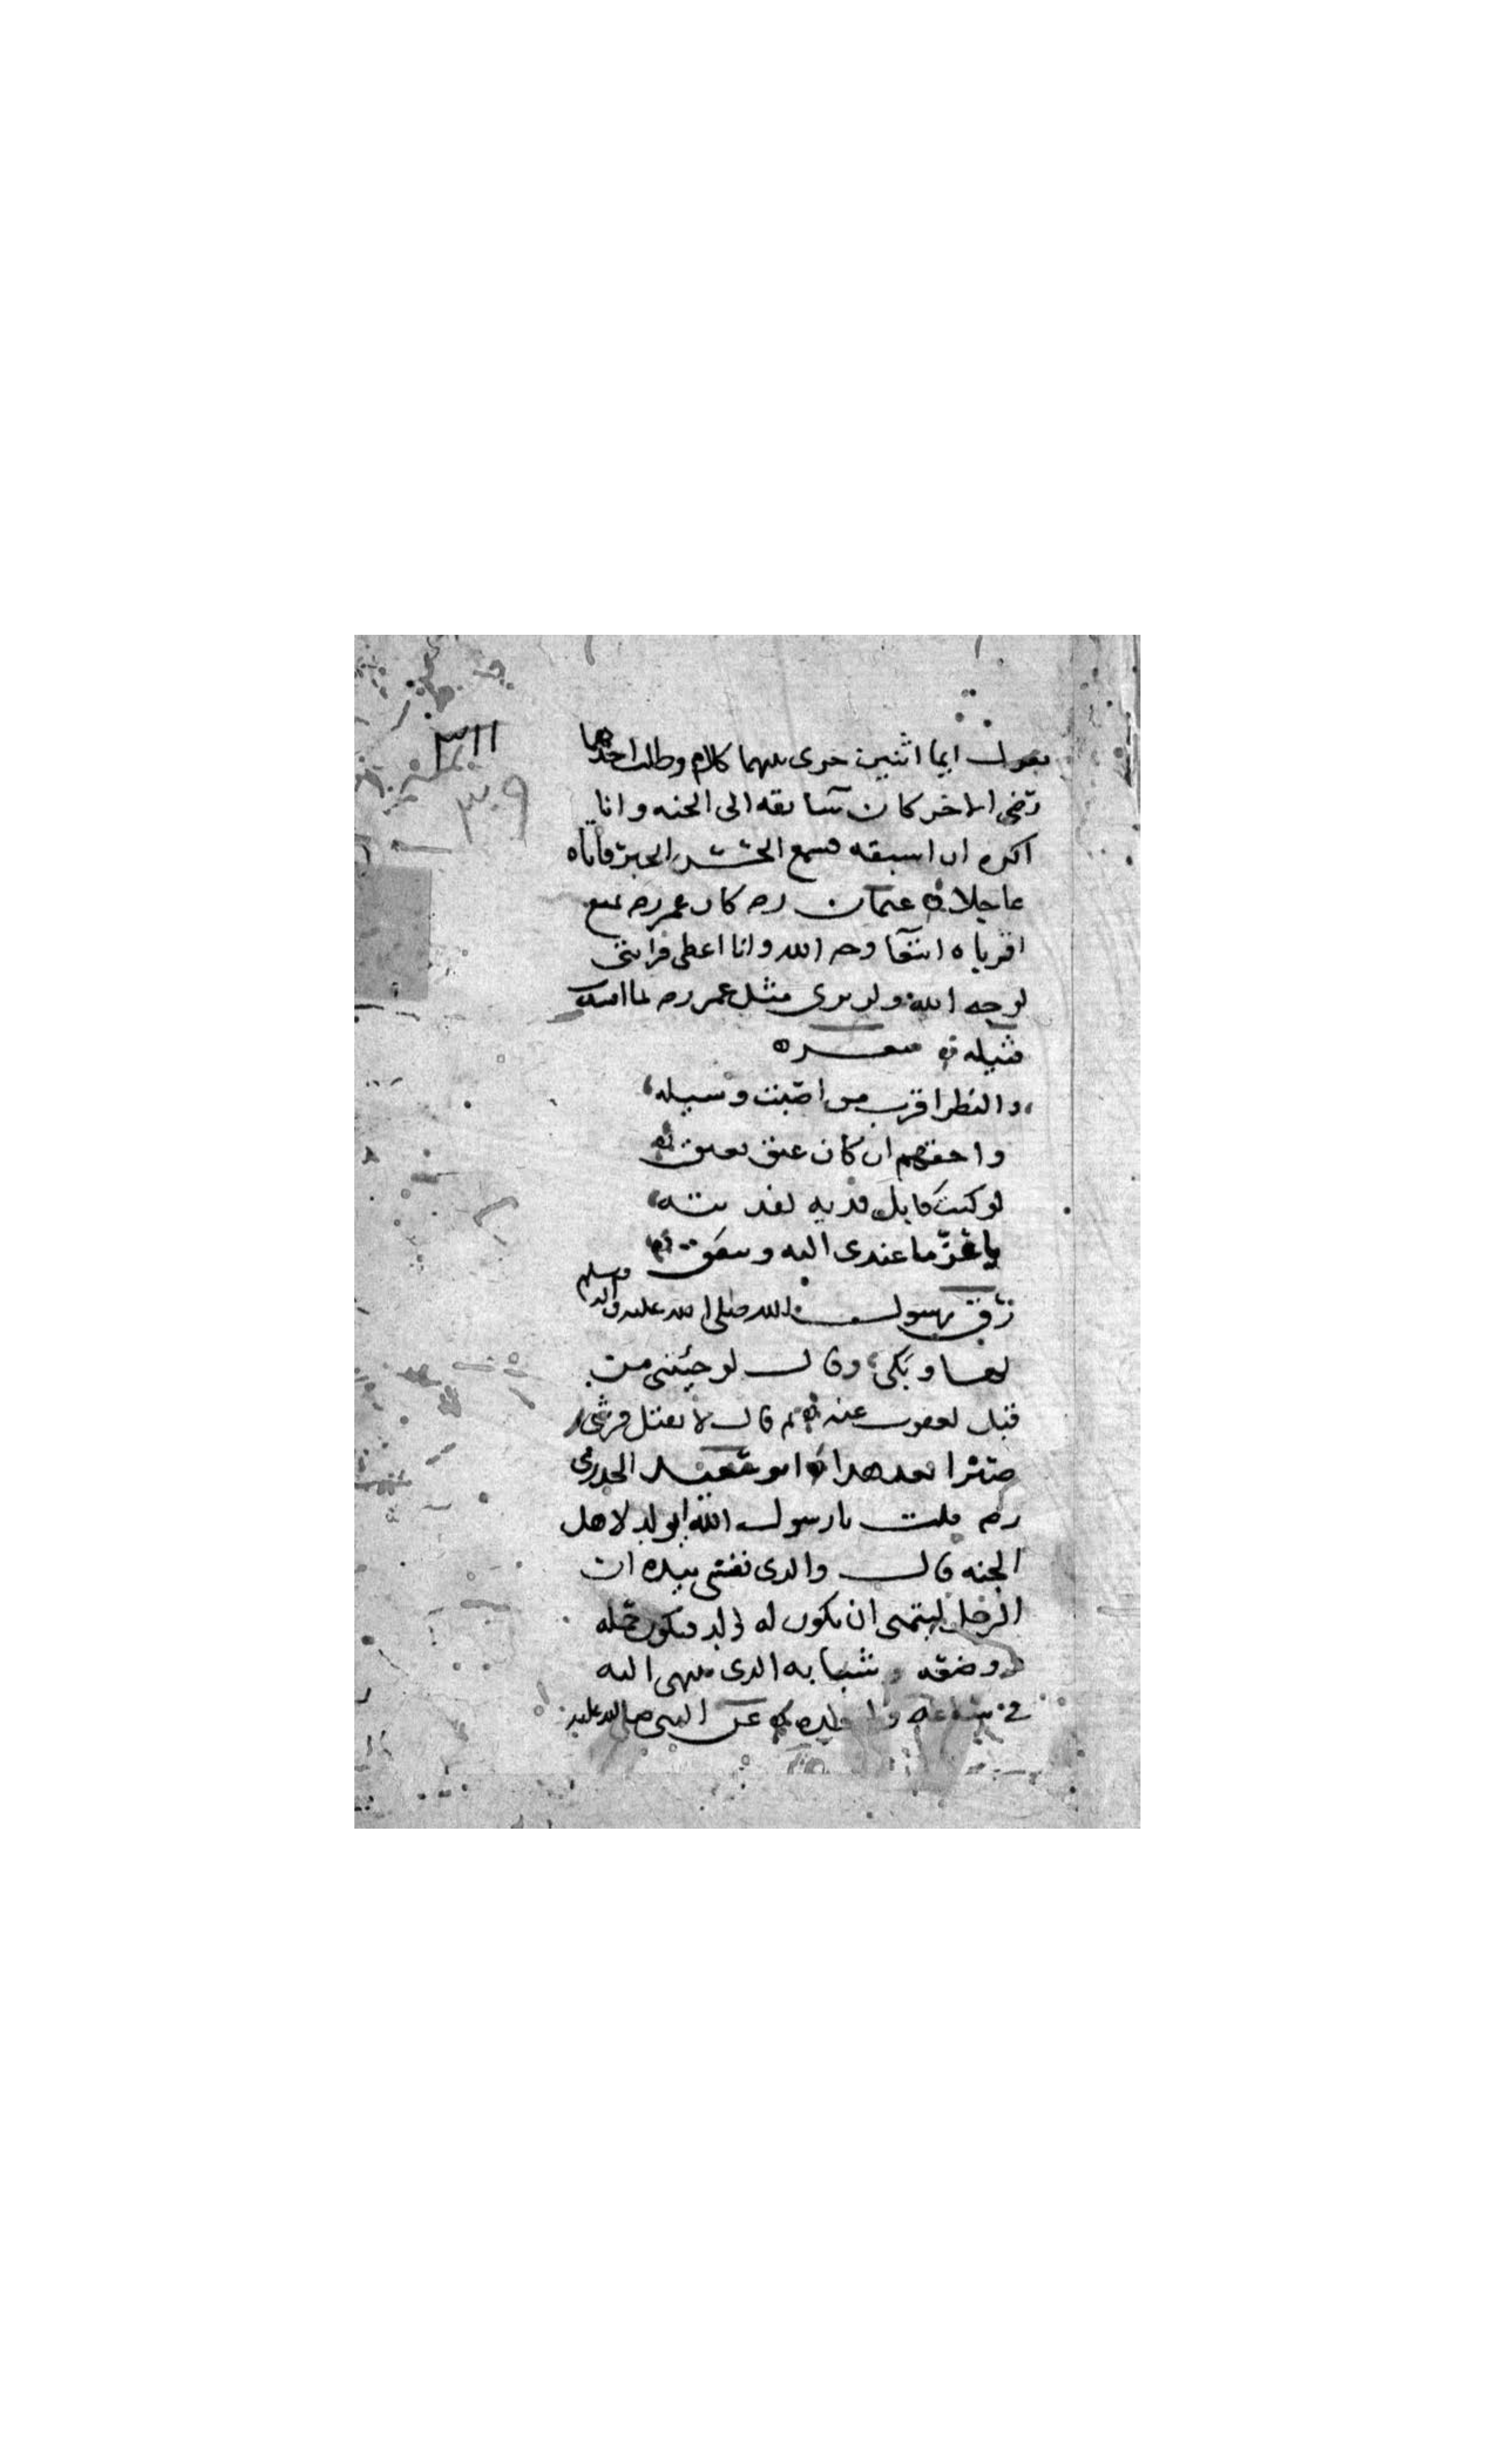 ٣١١
٣٠٩
يقول ايما اثنين جرى بينهما كلام وطلب احدهما
رضى الاخر كان سابقه الى الجنه وانا
اكره ان اسبقه فسمع الحسين الخبر فاتاه
عاجلا عثمان رضه كان عمر رضه يمنع
اقرباه ابتغا وجه الله وانا اعطى قرابتى
لوجه الله ولن يرى مثل عمر رضه
والنظر اقرب من وسيله
واحقهم ان كان عتق يعتق
لو كنت قابل فديه لفديته
باعز ما عندى اليه وينفق
فرق رسول الله صلى الله عليه واله وسلم
لها وبكى وقال لو جئتنى من
قبل لعفوت عنه ثم قال لا يقتل قرشى
صبرا بعد هذا ابو سعيد الخدرى
رضه قلت يا رسول الله ايولد لاهل
الجنه قال والذى نفسى بيده ان
الرجل ليتمنى ان يكون له ولد فيكون حمله
ووضعه وشبابه الذى ينتهى اليه
فى ساعه واحده عن النبى صلى الله عليه